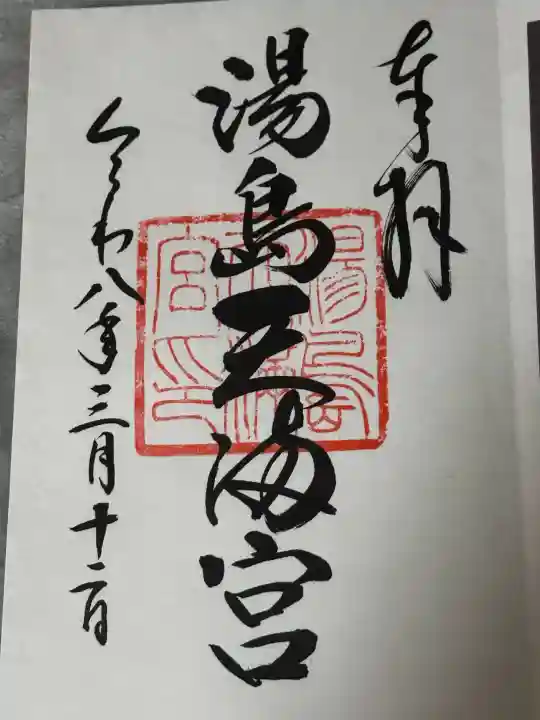 奉拝
湯島天満宮
令和八年三月十二日
湯島天満宮印